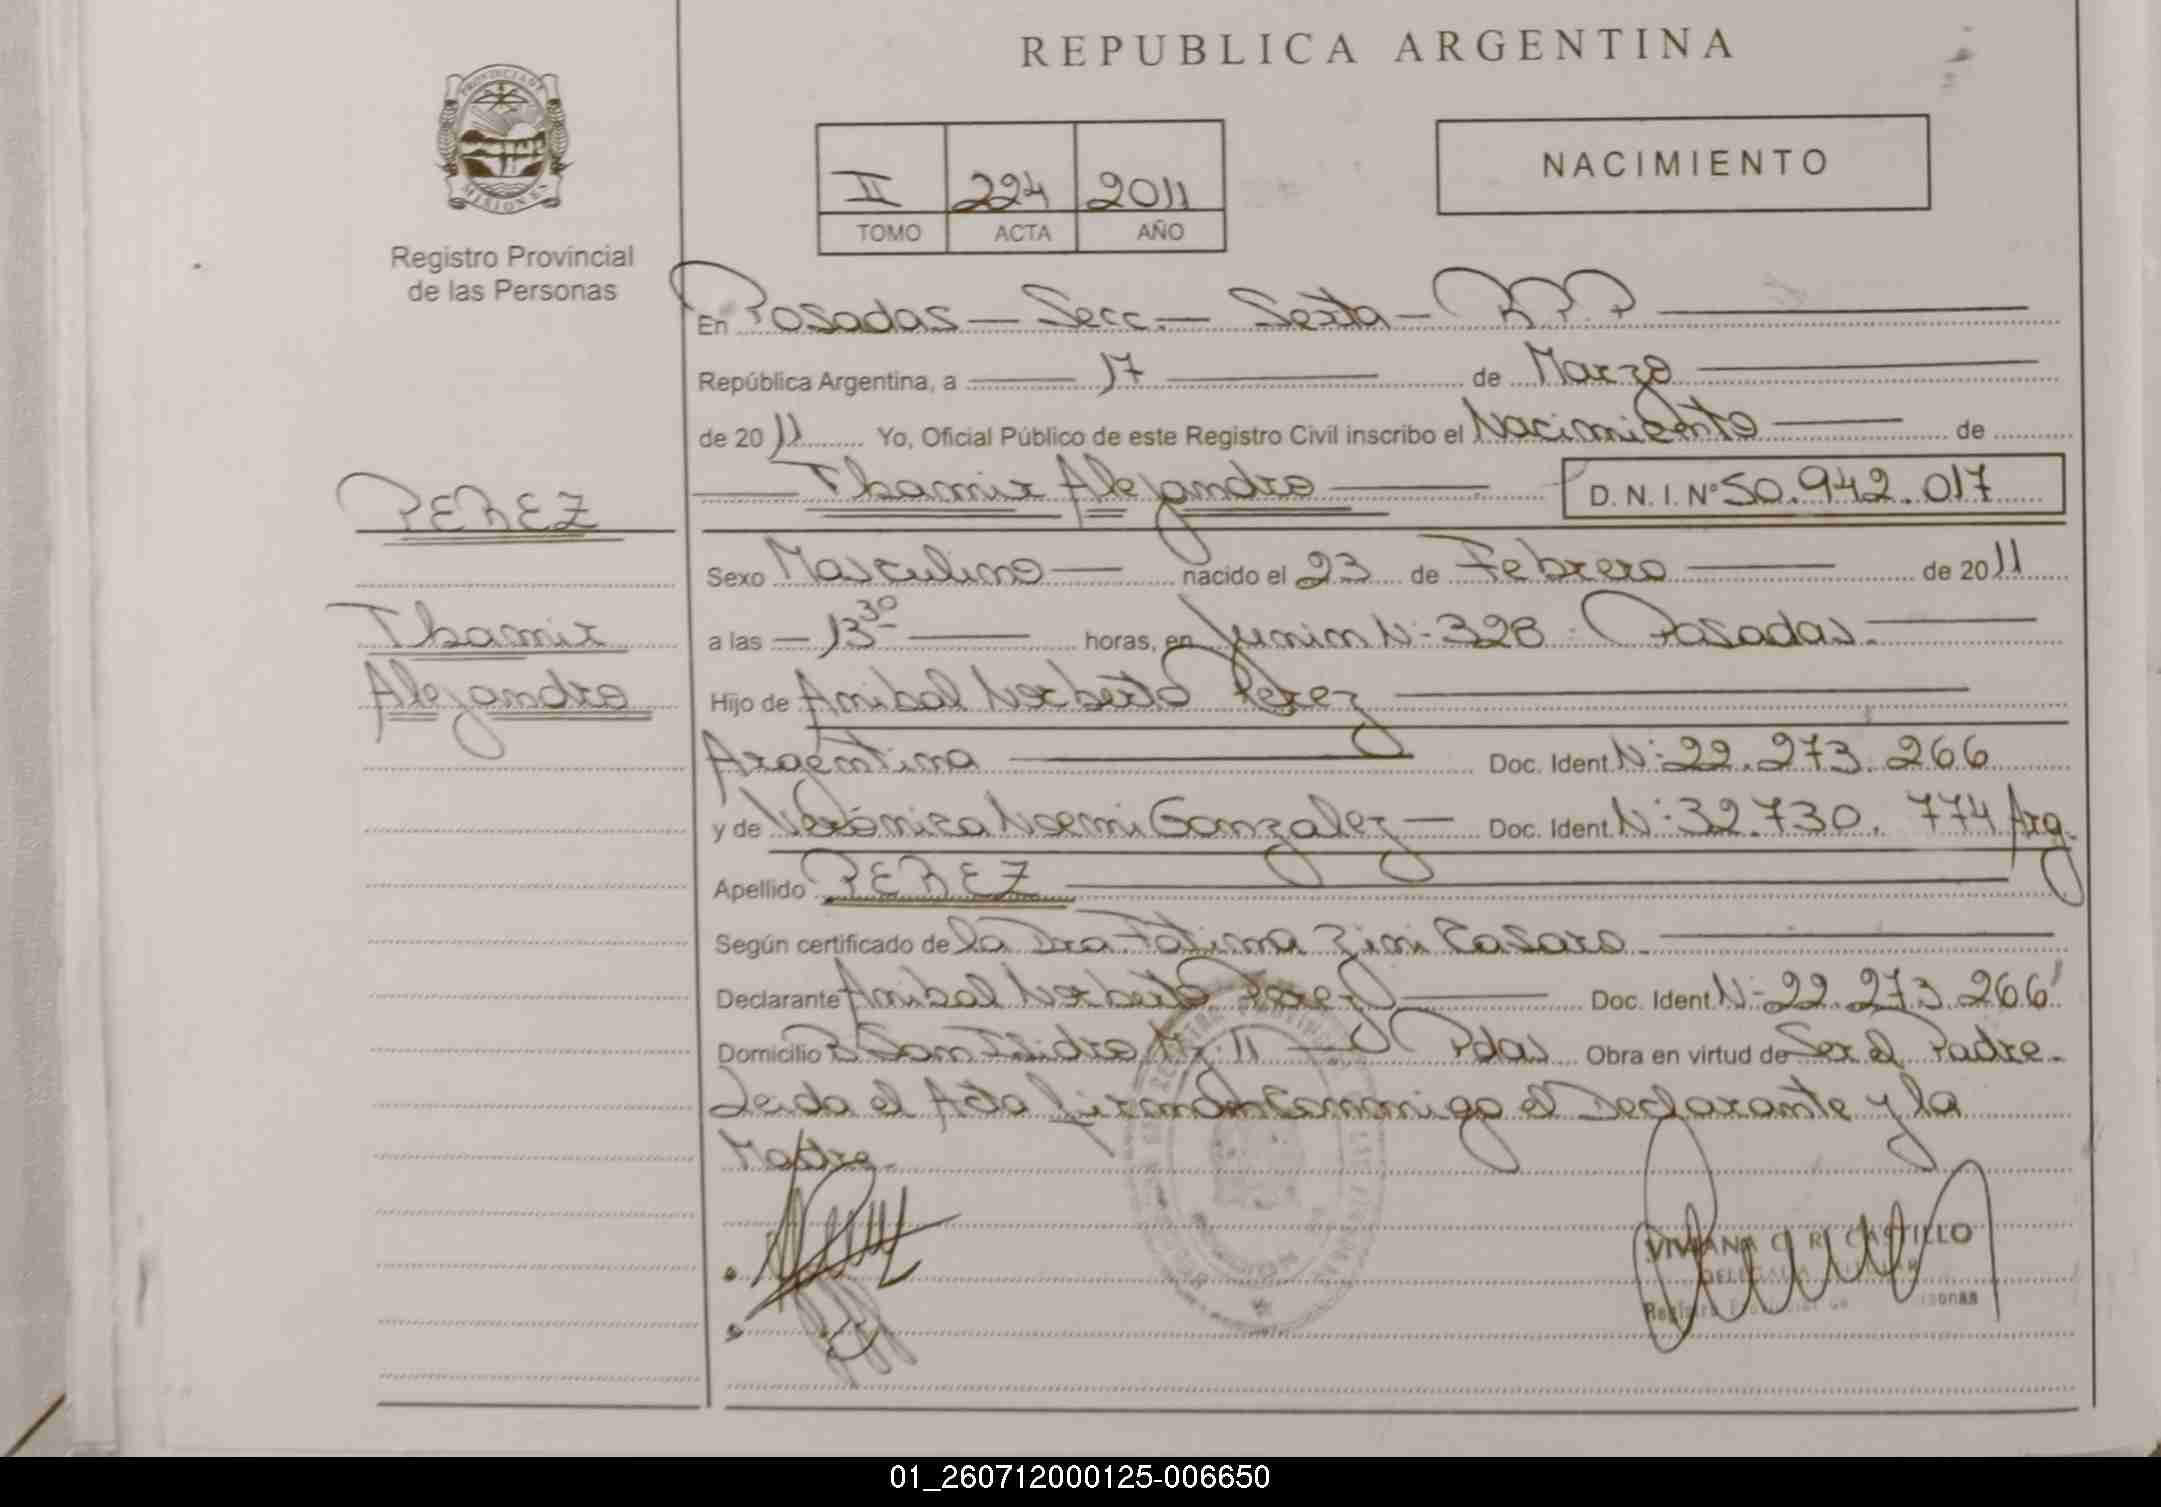 REPUBLICA ARGENTINA
PROVINCIA DE MISIONES
Registro Provincial
de las Personas
II 224 2011
TOMO ACTA AÑO
NACIMIENTO
En Posadas - Secc. - Sexta - R.P.P
República Argentina, a 17 de Marzo
de 2011 Yo, Oficial Público de este Registro Civil inscribo el Nacimiento de
Thamir Alejandro D.N.I. Nº 50.942.017
PEREZ
Thamir
Alejandro
Sexo Masculino nacido el 23 de Febrero de 2011
a las 13 30 horas, en Junin Nº 328 Posadas.
Hijo de Anibal Norberto Perez
Argentina Doc. Ident. Nº 22.273.266
y de Verónica Noemi Gonzalez Doc. Ident. Nº 32.730.774 Arg.
Apellido PEREZ
Según certificado de la Dra Fátima Zini Casaro
Declarante Anibal Norberto Perez Doc. Ident. Nº 22.273.266
Domicilio Bº San Isidro 11 Pdas Obra en virtud de Ser el Padre.
Leida el Acta firman conmigo el Declarante y la
Madre.
VIVIANA C. R. CASTILLO
DELEGADA
Registro Provincial de Personas
01_260712000125-006650